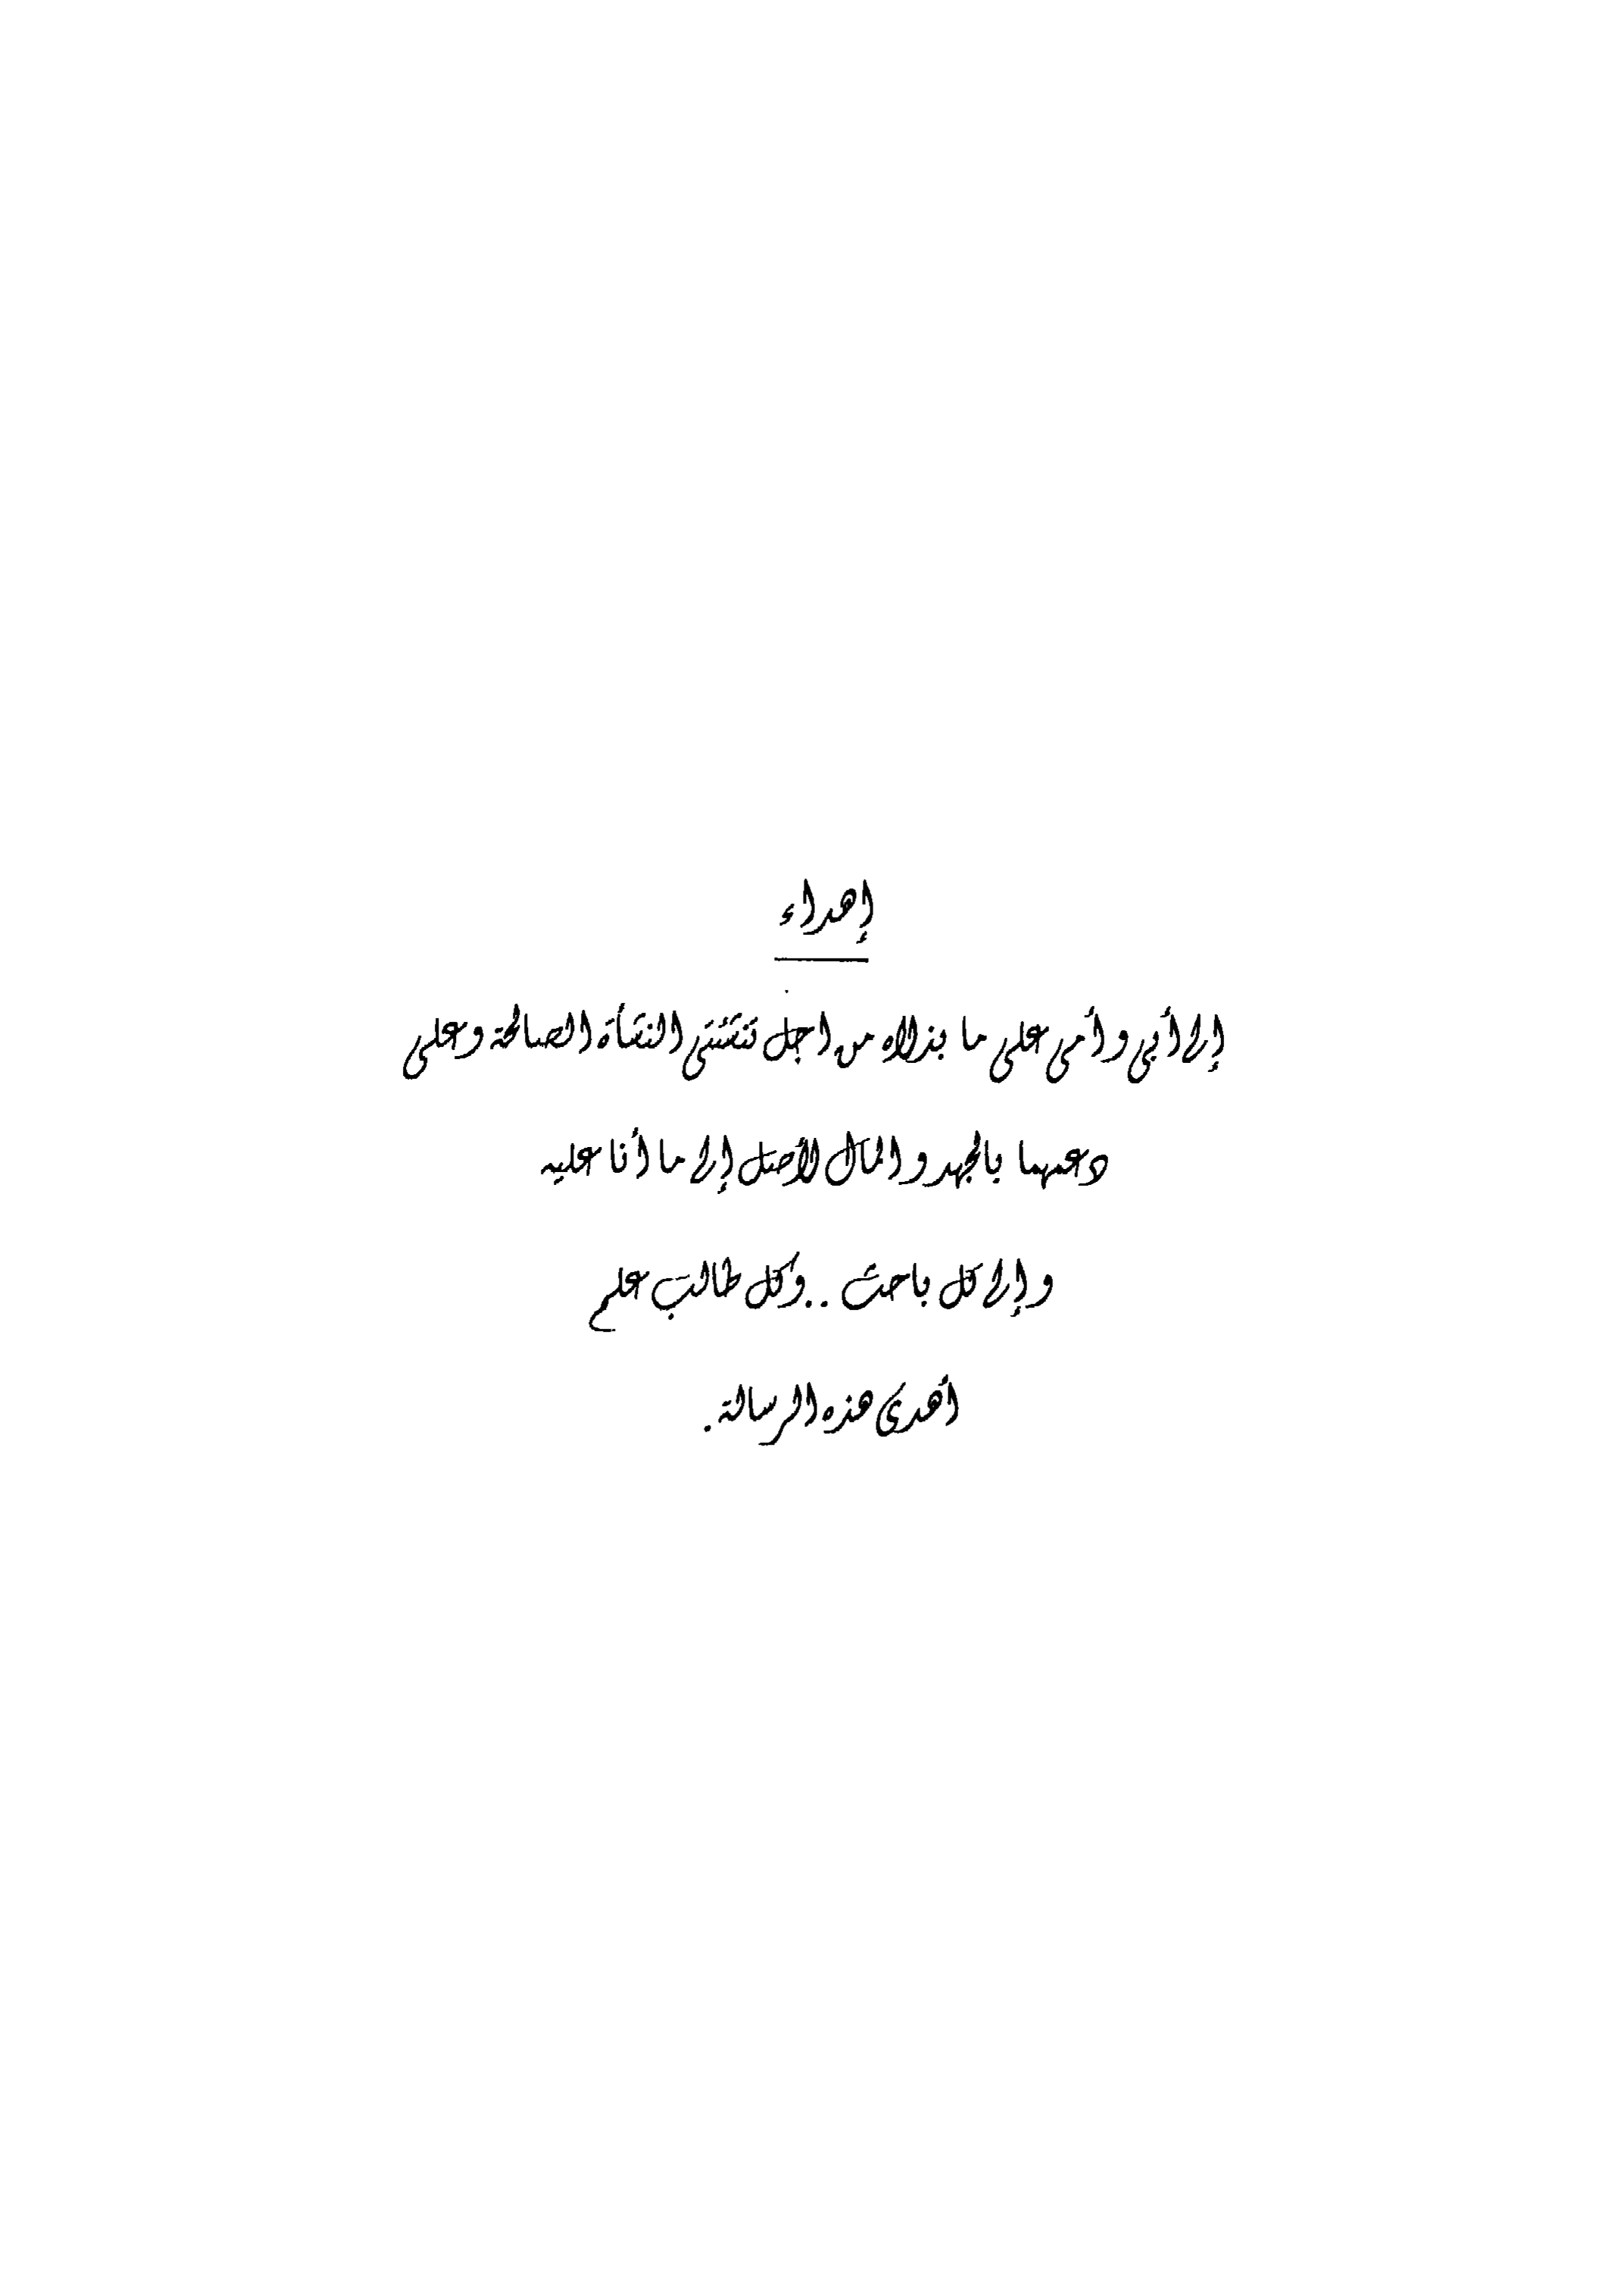 إهداء
إلى أبي وأمى على ما بذلاه من اجل تنشئتى النشأة الصالحة وعلى
دعمهما بالجهد والمال لأصل إلى ما أنا عليه
وإلى كل باحث .. وكل طالب علم
أهدى هذه الرسالة.